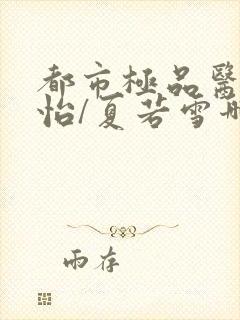 都市極品醫
怡/夏若雪
雨存